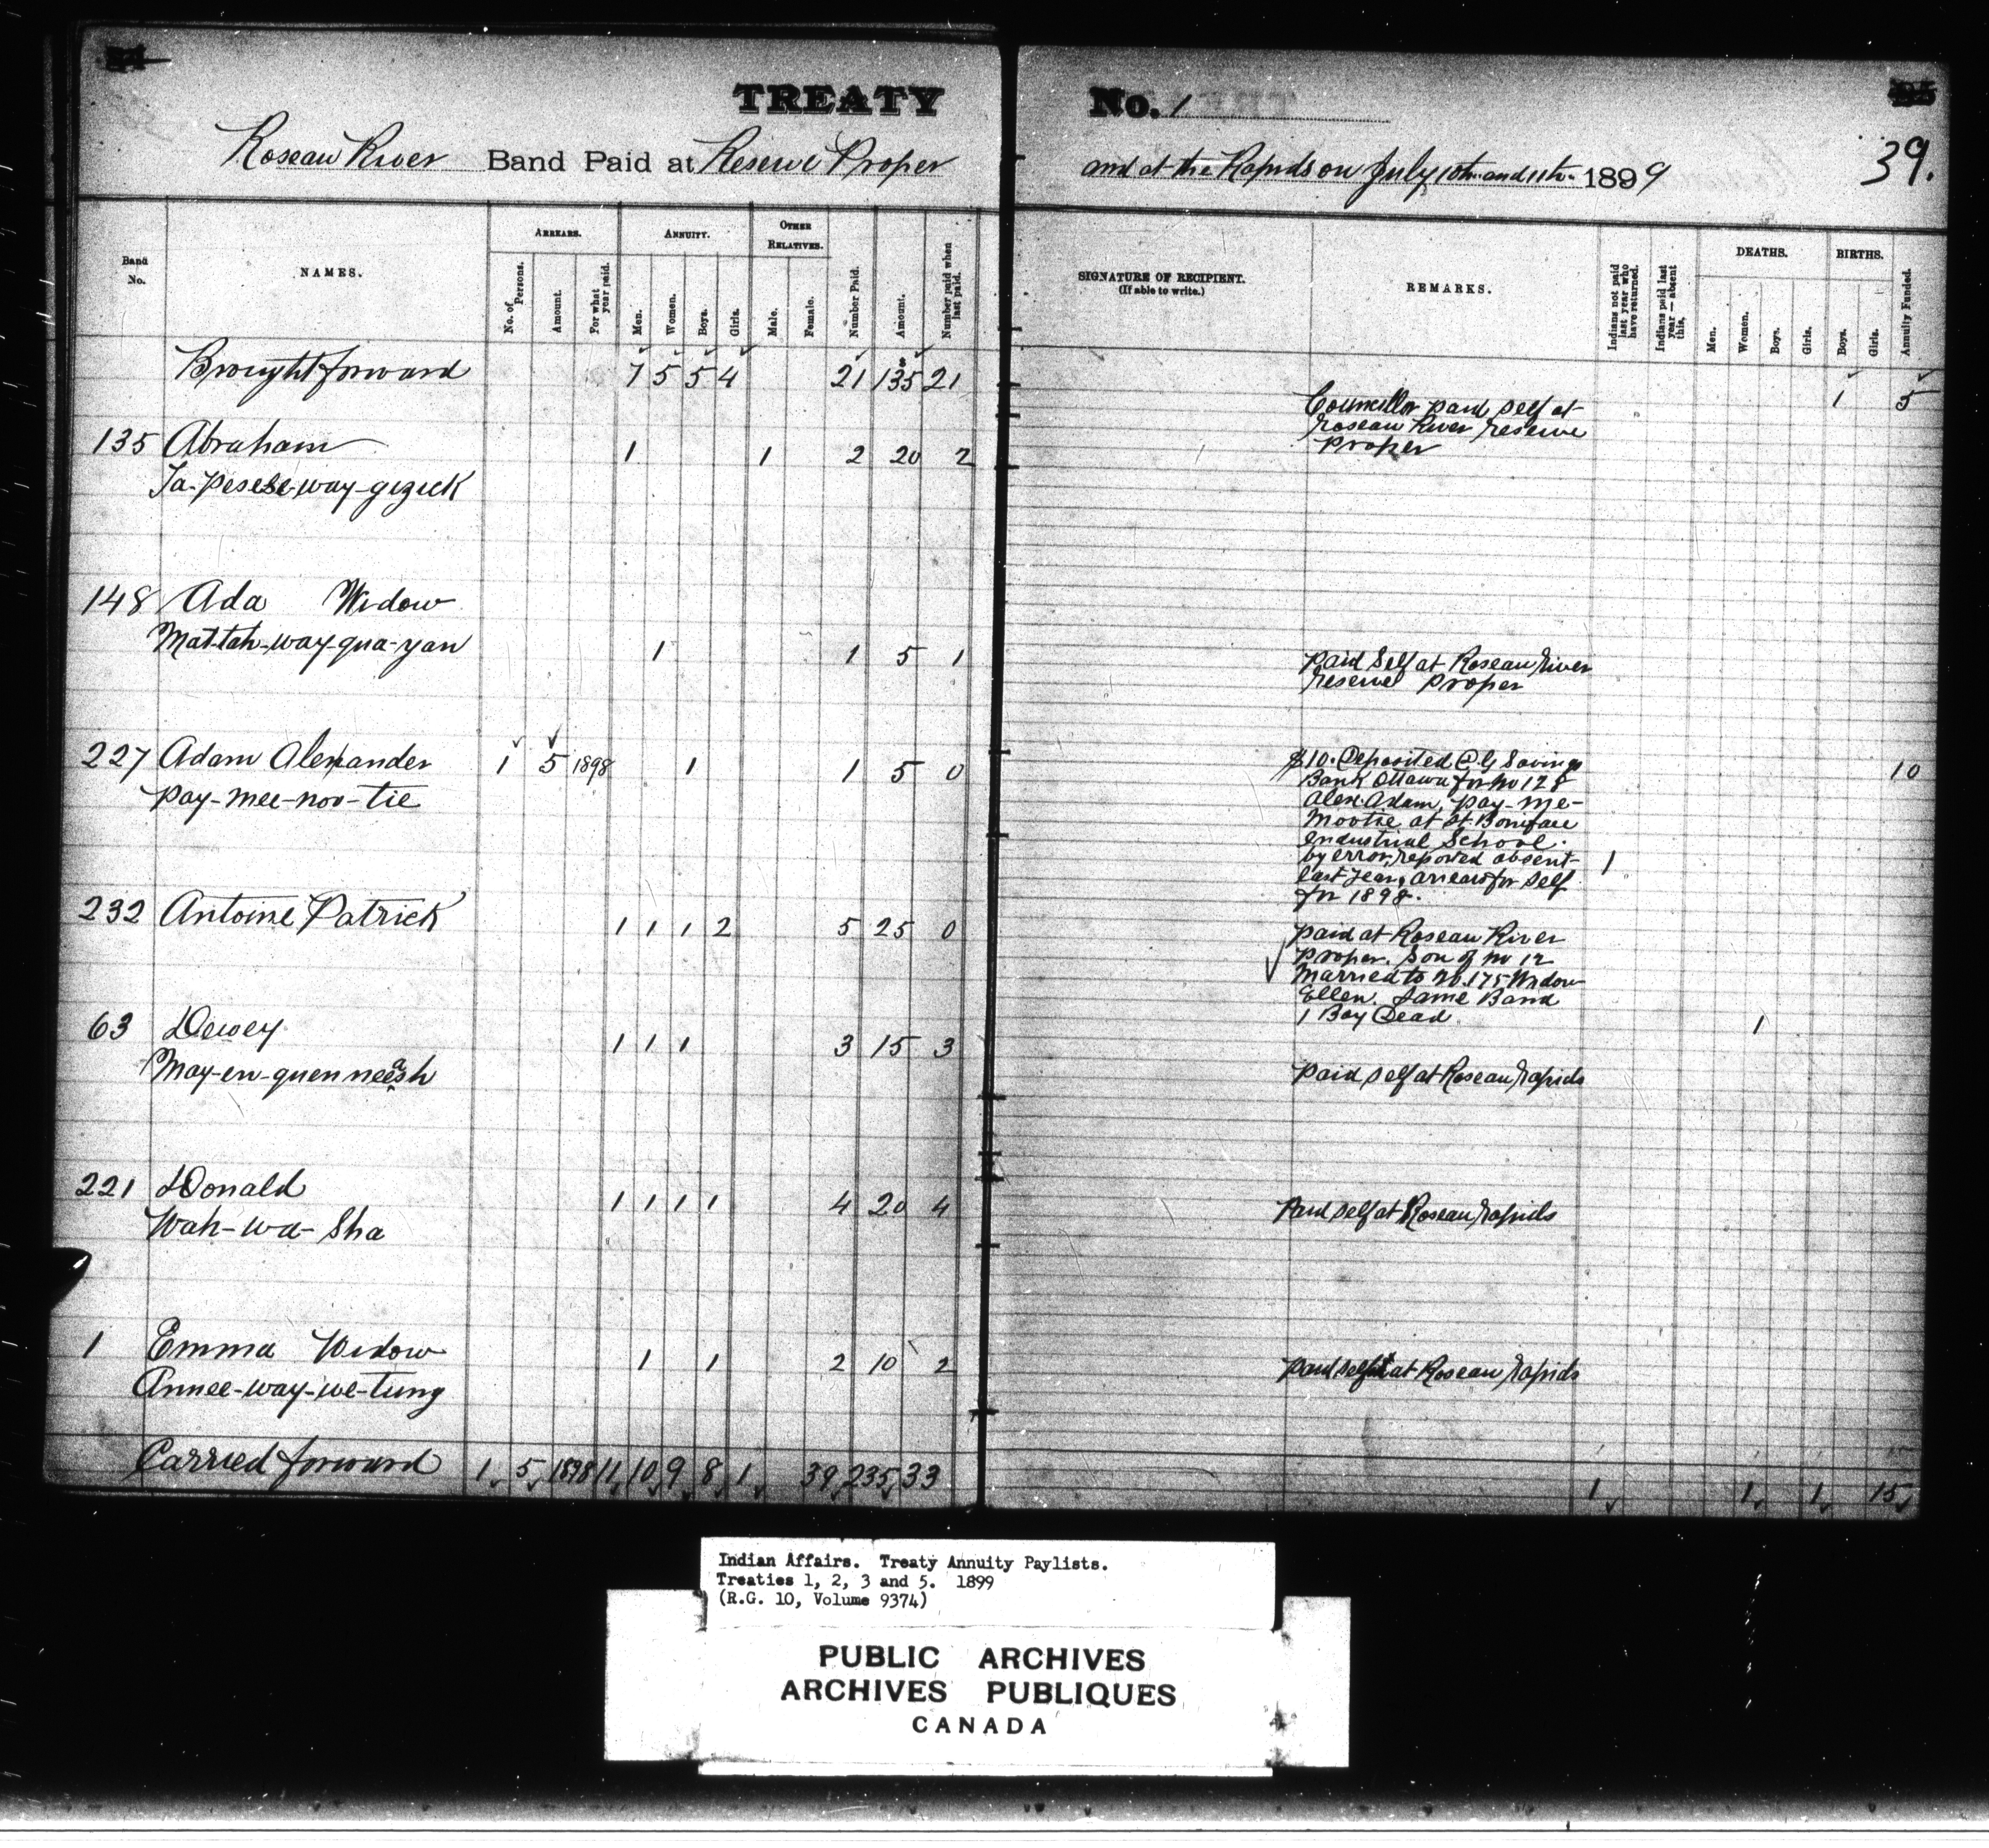 TREATY No. 1
39.
Roseau River Band Paid at Reserve Proper and at the Rapids on July 10th and 11th 1899
Band No.
NAMES.
ARREARS.
No. of Persons.
Amount.
For what year paid.
ANNUITY.
Men.
Women.
Boys.
Girls.
OTHER RELATIVES.
Male.
Female.
Number Paid.
Amount.
Number paid when last paid.
SIGNATURE OF RECIPIENT.
(If able to write.)
REMARKS.
Indians not paid last year who have returned.
Indians paid last year — absent this.
DEATHS.
Men.
Women.
Boys.
Girls.
BIRTHS.
Boys.
Girls.
Annuity Funded.
Brought forward 7 5 5 4 21 $135 21 1 5
135 Abraham 1 1 2 20 2
Ja-pesese-way-gezick
Councillor paid self at
Roseau River reserve
proper
148 Ada Widow
Mat-tah-way-qua-yan 1 1 5 1
paid self at Roseau River
reserve proper
227 Adam Alexander 1 5 1898 1 1 5 0 10
Pay-mee-noo-tie
$10. Deposited P.G Savings
Bank Ottawa for no 128
Alex. Adam, pay-me-
mootie at St. Boniface
Industrial School.
by error, reported absent 1
last year, arrears for self
for 1898.
232 Antoine Patrick 1 1 1 2 5 25 0
paid at Roseau River
proper. Son of no 12
Married to no. 175 Widow
Ellen. Same Band
1 Boy Dead 1
63 Dewey 1 1 1 3 15 3
May-en-guen neeash
paid self at Roseau rapids
221 Donald 1 1 1 1 4 20 4
Wah-wa-sha
Paid self at Roseau rapids
1 Emma Widow 1 1 2 10 2
Annee-way-we-tung
paid self at Roseau rapids
Carried forward 1 5 1898 11 10 9 8 1 39 235 33 1 1 1 15
Indian Affairs. Treaty Annuity Paylists.
Treaties 1, 2, 3 and 5. 1899
(R.G. 10, Volume 9374)
PUBLIC ARCHIVES
ARCHIVES PUBLIQUES
CANADA